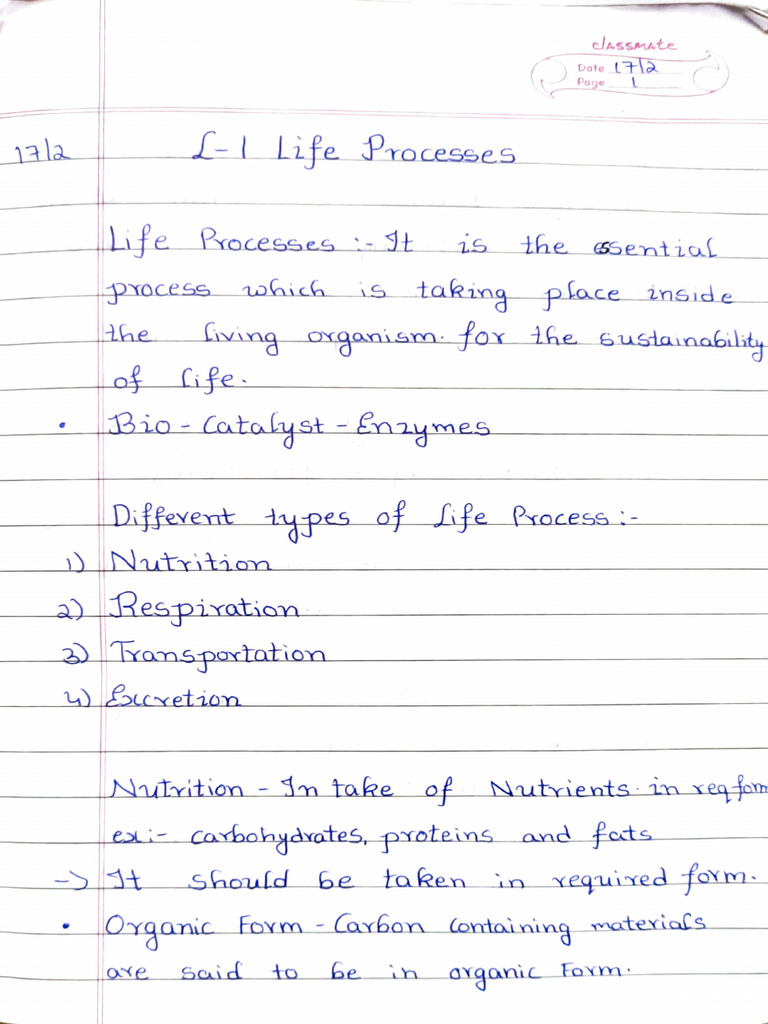 classmate
Date 17/2
Page 1
17/2 L-1 Life Processes
Life Processes :- It is the essential
process which is taking place inside
the living organism. for the sustainability
of life.
• Bio - Catalyst - Enzymes
Different types of Life Process :-
1) Nutrition
2) Respiration
3) Transportation
4) Excretion
Nutrition - In take of Nutrients. in req form
ex:- carbohydrates, proteins and fats
-> It should be taken in required form.
• Organic Form - Carbon containing materials
are said to be in organic Form.